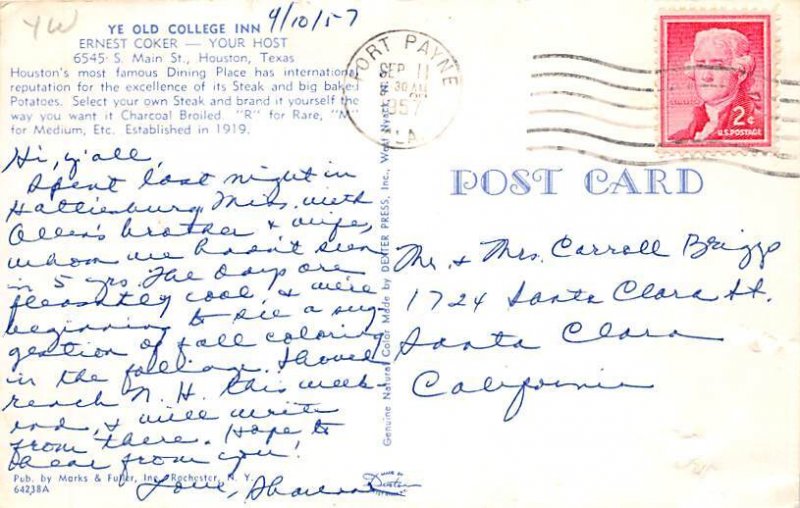 YW
YE OLD COLLEGE INN 9/10/57
ERNEST COKER — YOUR HOST
6545 S. Main St., Houston, Texas
Houston's most famous Dining Place has international
reputation for the excellence of its Steak and big baked
Potatoes. Select your own Steak and brand it yourself the
way you want it Charcoal Broiled. "R" for Rare, "M"
for Medium, Etc. Established in 1919.
Hi, y'all,
Spent last night in
Hattiesburg Miss. with
Allen's brother & wife,
whom we hadn't seen
in 5 yrs. The days are
pleasantly cool, & we're
beginning to see a sug-
gestion of fall coloring
in the foliage. Should
reach N. H. this week-
end, & will write
from there. Hope to
hear from you!
Love,
Pub. by Marks & Fuller, Inc., Rochester, N. Y.
64238A
Genuine Natural Color Made by DEXTER PRESS, Inc., West Nyack, N.
MADE BY
Dexter
FORT PAYNE
SEP 11
30 AM
1957
ALA.
2¢
U.S. POSTAGE
POST CARD
Mr. & Mrs. Carroll Briggs
1724 Santa Clara St.
Santa Clara
California